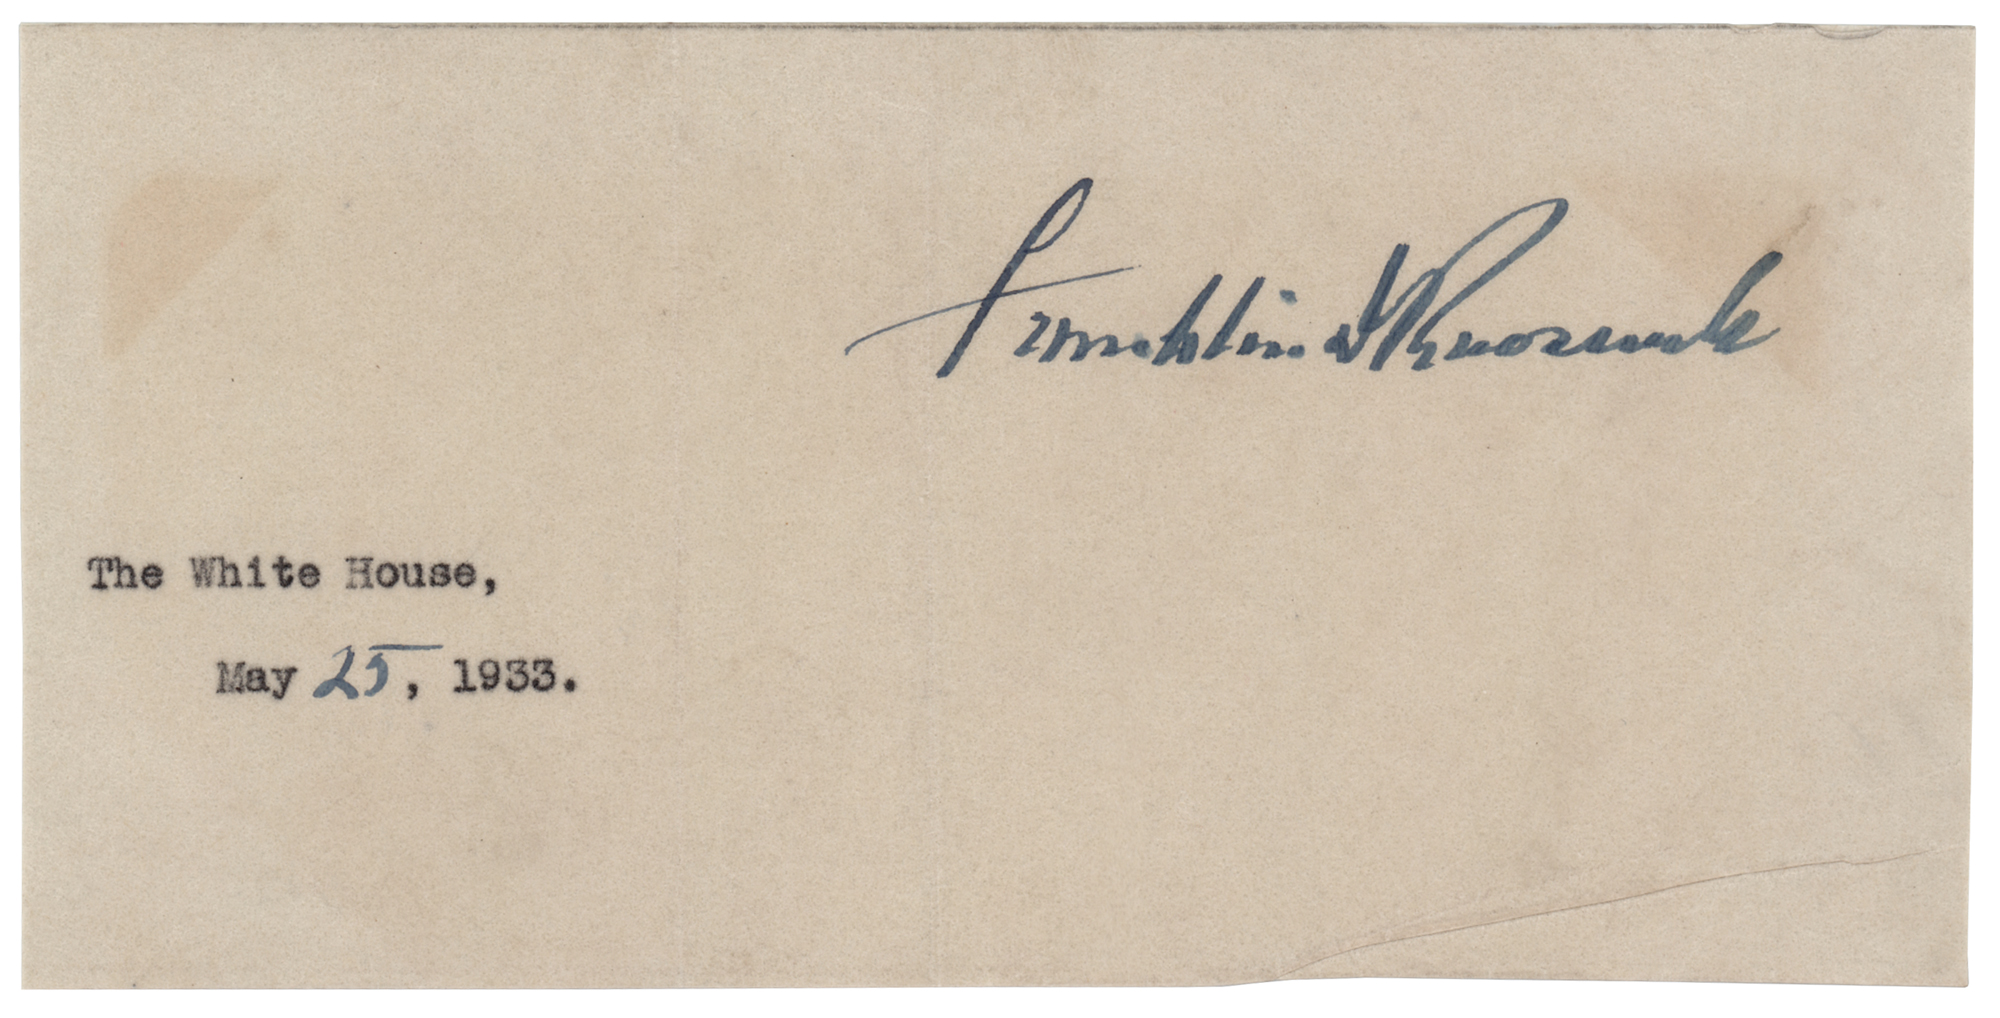 Franklin D Roosevelt
The White House,
May 25, 1933.